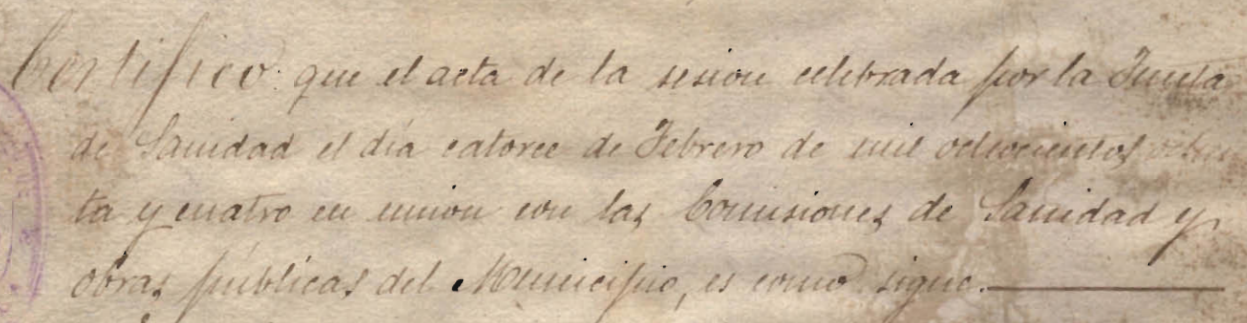 Certifico: que el acta de la sesion celebrada por la Junta
de Sanidad el día catorce de Febrero de mil ochocientos ochen
ta y cuatro en union con las Comisiones de Sanidad y
obras públicas del Municipio, es como sigue.